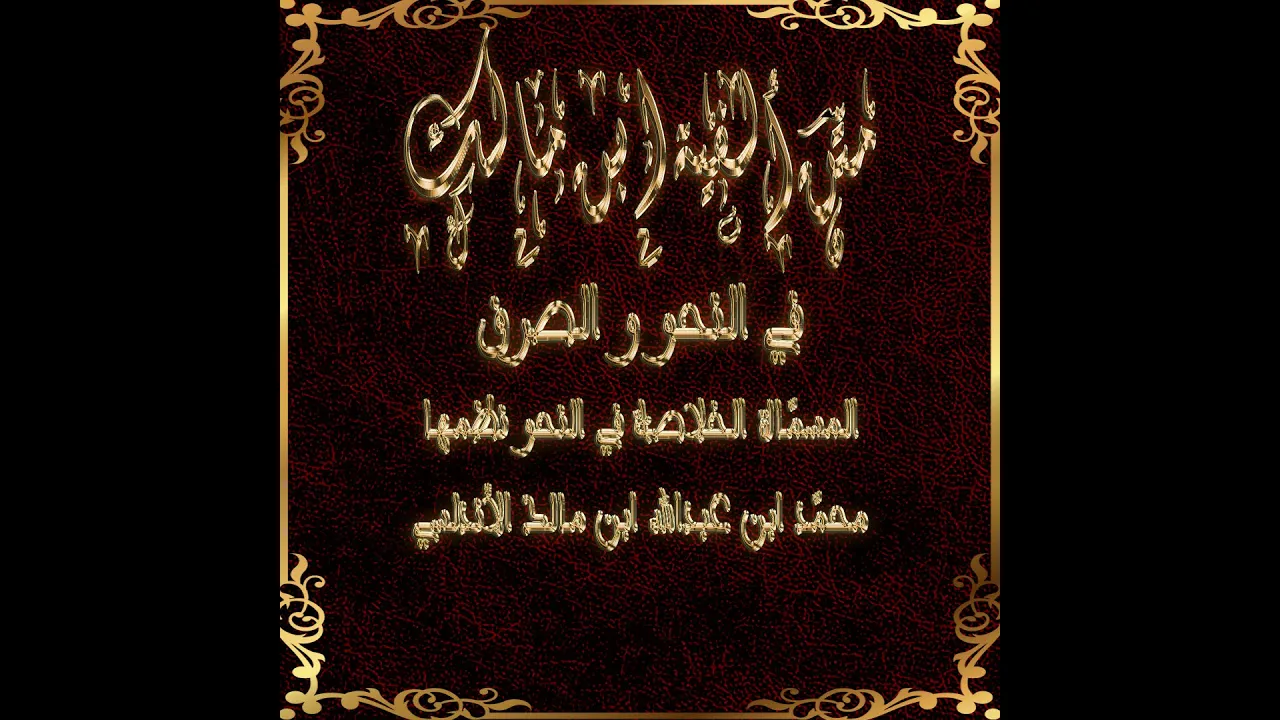 متن ألفية ابن مالك
في النحو و الصرف
المسمّاة الخلاصة في النحو نظمها
محمّد ابن عبدالله ابن مالك الأندلسي